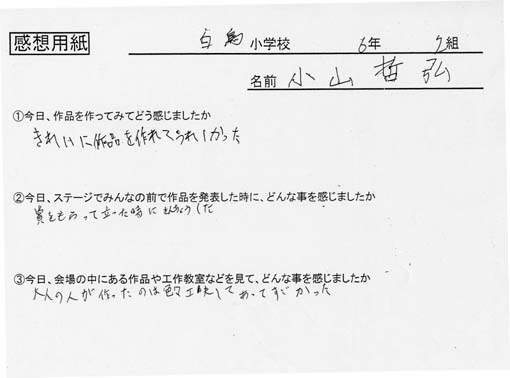 感想用紙
白鳥小学校 6年 2組
名前 小山哲弘
①今日、作品を作ってみてどう感じましたか
きれいに作品を作れてうれしかった
②今日、ステージでみんなの前で作品を発表した時に、どんな事を感じましたか
賞をもらって立った時にきんちょうした
③今日、会場の中にある作品や工作教室などを見て、どんな事を感じましたか
大人の人が作ったのは工夫してあってすごかった